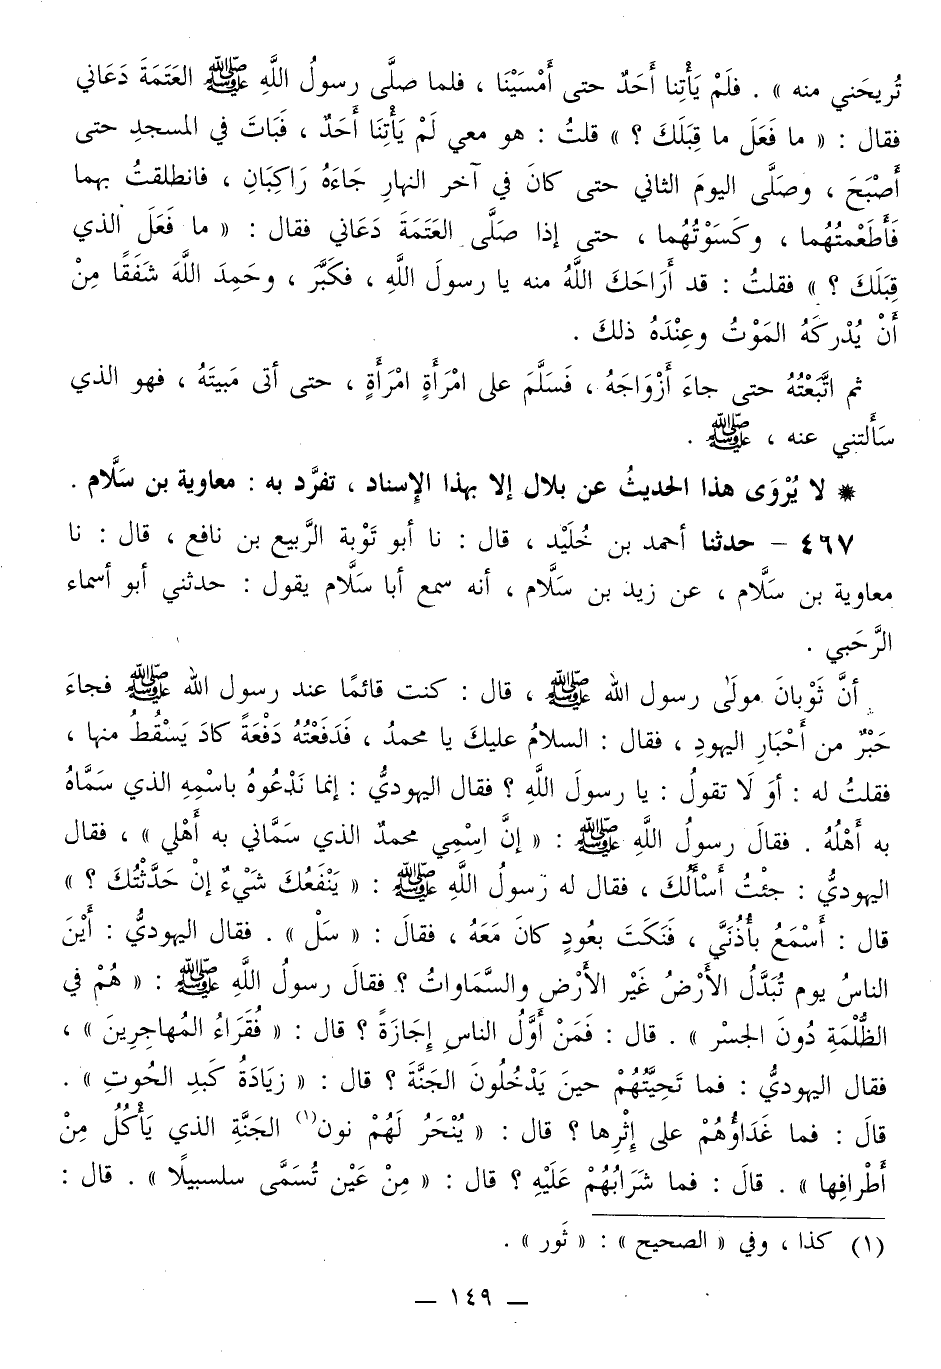 تُريحَني منه » . فلَمْ يَأْتِنا أَحَدٌ حتى أَمْسَيْنَا ، فلما صلَّى رسولُ اللَّهِ ﷺ العَتَمَةَ دَعَاني
فقال : « ما فَعَلَ ما قِبَلَكَ ؟ » قلتُ : هو معي لَمْ يَأْتِنَا أَحَدٌ ، فَبَاتَ في المسجدِ حتى
أَصْبَحَ ، وصَلَّى اليومَ الثاني حتى كانَ في آخر النهارِ جَاءَهُ رَاكِبَانِ ، فانطلقتُ بهما
فَأَطْعَمتُهُما ، وكَسَوْتُهُما ، حتى إذا صَلَّى العَتَمَةَ دَعَاني فقال : « ما فَعَلَ الذي
قِبَلَكَ ؟ » فقلتُ : قد أَرَاحَكَ اللَّهُ منه يا رسولَ اللَّهِ ، فكَبَّرَ ، وحَمِدَ اللَّهَ شَفَقًا مِنْ
أَنْ يُدْركَهُ المَوْتُ وعِنْدَهُ ذلكَ .
ثم اتَّبَعْتُهُ حتى جاءَ أَزْوَاجَهُ ، فَسَلَّمَ على امْرأَةٍ امْرَأَةٍ ، حتى أتى مَبيتَهُ ، فهو الذي
سَأَلتني عنه ، ﷺ .
* لا يُرْوَى هذا الحديثُ عن بلال إلا بهذا الإِسناد ، تفرَّد به : معاوية بن سَلَّام .
٤٦٧ – حدثنا أحمد بن خُلَيْد ، قال : نا أبو تَوْبة الرَّبيع بن نافع ، قال : نا
معاوية بن سَلَّام ، عن زيد بن سَلَّام ، أنه سمع أبا سَلَّام يقول : حدثني أبو أسماء
الرَّحَبي .
أنَّ ثَوْبانَ مولَى رسول الله ﷺ ، قال : كنت قائمًا عند رسول الله ﷺ فجاءَ
حَبْرٌ من أَحْبَارِ اليهودِ ، فقال : السلامُ عليكَ يا محمدُ ، فَدَفَعْتُهُ دَفْعَةً كادَ يَسْقُطُ منها ،
فقلتُ له : أوَ لَا تقولُ : يا رسولَ اللَّهِ ؟ فقال اليهوديُّ : إنما نَدْعُوهُ باسْمِهِ الذي سَمَّاهُ
به أَهْلُهُ . فقالَ رسولُ اللَّهِ ﷺ : « إنَّ اسْمِي محمدٌ الذي سَمَّاني به أَهْلي » ، فقال
اليهوديُّ : جئْتُ أَسْأَلُكَ ، فقال له رَسولُ اللَّهِ ﷺ : « يَنْفَعُكَ شَيْءٌ إنْ حَدَّثْتُكَ ؟ »
قال : أَسْمَعُ بأُذُنَيَّ ، فَنَكَتَ بعُودٍ كانَ مَعَهُ ، فقالَ : « سَلْ » . فقال اليهوديُّ : أَيْنَ
الناسُ يوم تُبَدَّلُ الأَرْضُ غَيْر الأَرْضِ والسَّمَاواتُ ؟ فقالَ رسولُ اللَّهِ ﷺ : « هُمْ في
الظُّلْمَةِ دُونَ الجسْر » . قال : فَمَنْ أَوَّلُ الناسِ إجَازَةً ؟ قال : « فُقَرَاءُ المُهاجِرِينَ » ،
فقال اليهوديُّ : فما تَحيَّتُهُمْ حينَ يَدْخُلُونَ الجَنَّةَ ؟ قال : « زيَادَةُ كَبدِ الحُوتِ » .
قالَ : فما غَدَاؤُهُمْ على إِثْرِها ؟ قال : « يُنْحَرُ لَهُمْ نون(١) الجَنَّةِ الذي يَأْكُلُ مِنْ
أَطْرافِها » . قالَ : فما شَرَابُهُمْ عَلَيْهِ ؟ قال : « مِنْ عَيْنٍ تُسَمَّى سلسبيلًا » . قال :
(١) كذا ، وفي « الصحيح » : « ثَور » .
– ١٤٩ –